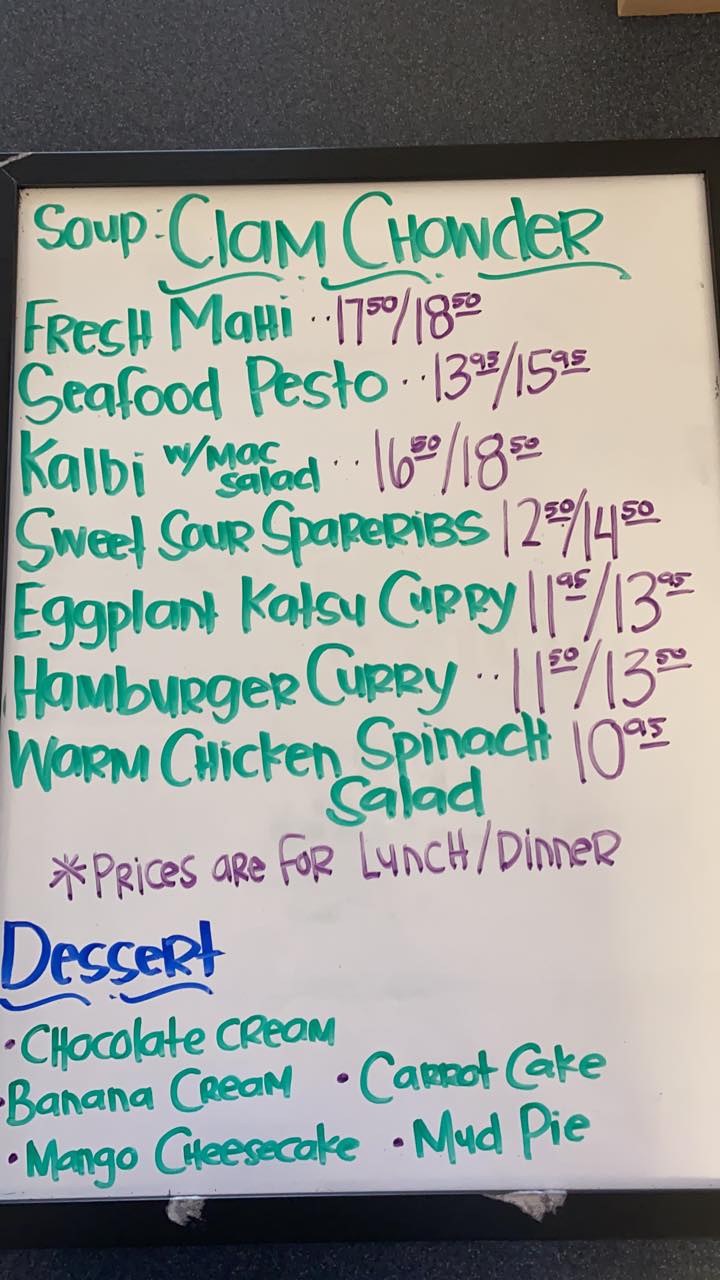 Soup: Clam Chowder
Fresh Mahi .. 17⁵⁰/18⁵⁰
Seafood Pesto .. 13⁹⁵/15⁹⁵
Kalbi w/Mac salad .. 16⁵⁰/18⁵⁰
Sweet Sour Spareribs 12⁵⁰/14⁵⁰
Eggplant Katsu Curry 11⁹⁵/13⁹⁵
Hamburger Curry .. 11⁵⁰/13⁵⁰
Warm Chicken Spinach 10⁹⁵
Salad
*Prices are for Lunch/Dinner
Dessert
• Chocolate Cream
• Banana Cream • Carrot Cake
• Mango Cheesecake • Mud Pie